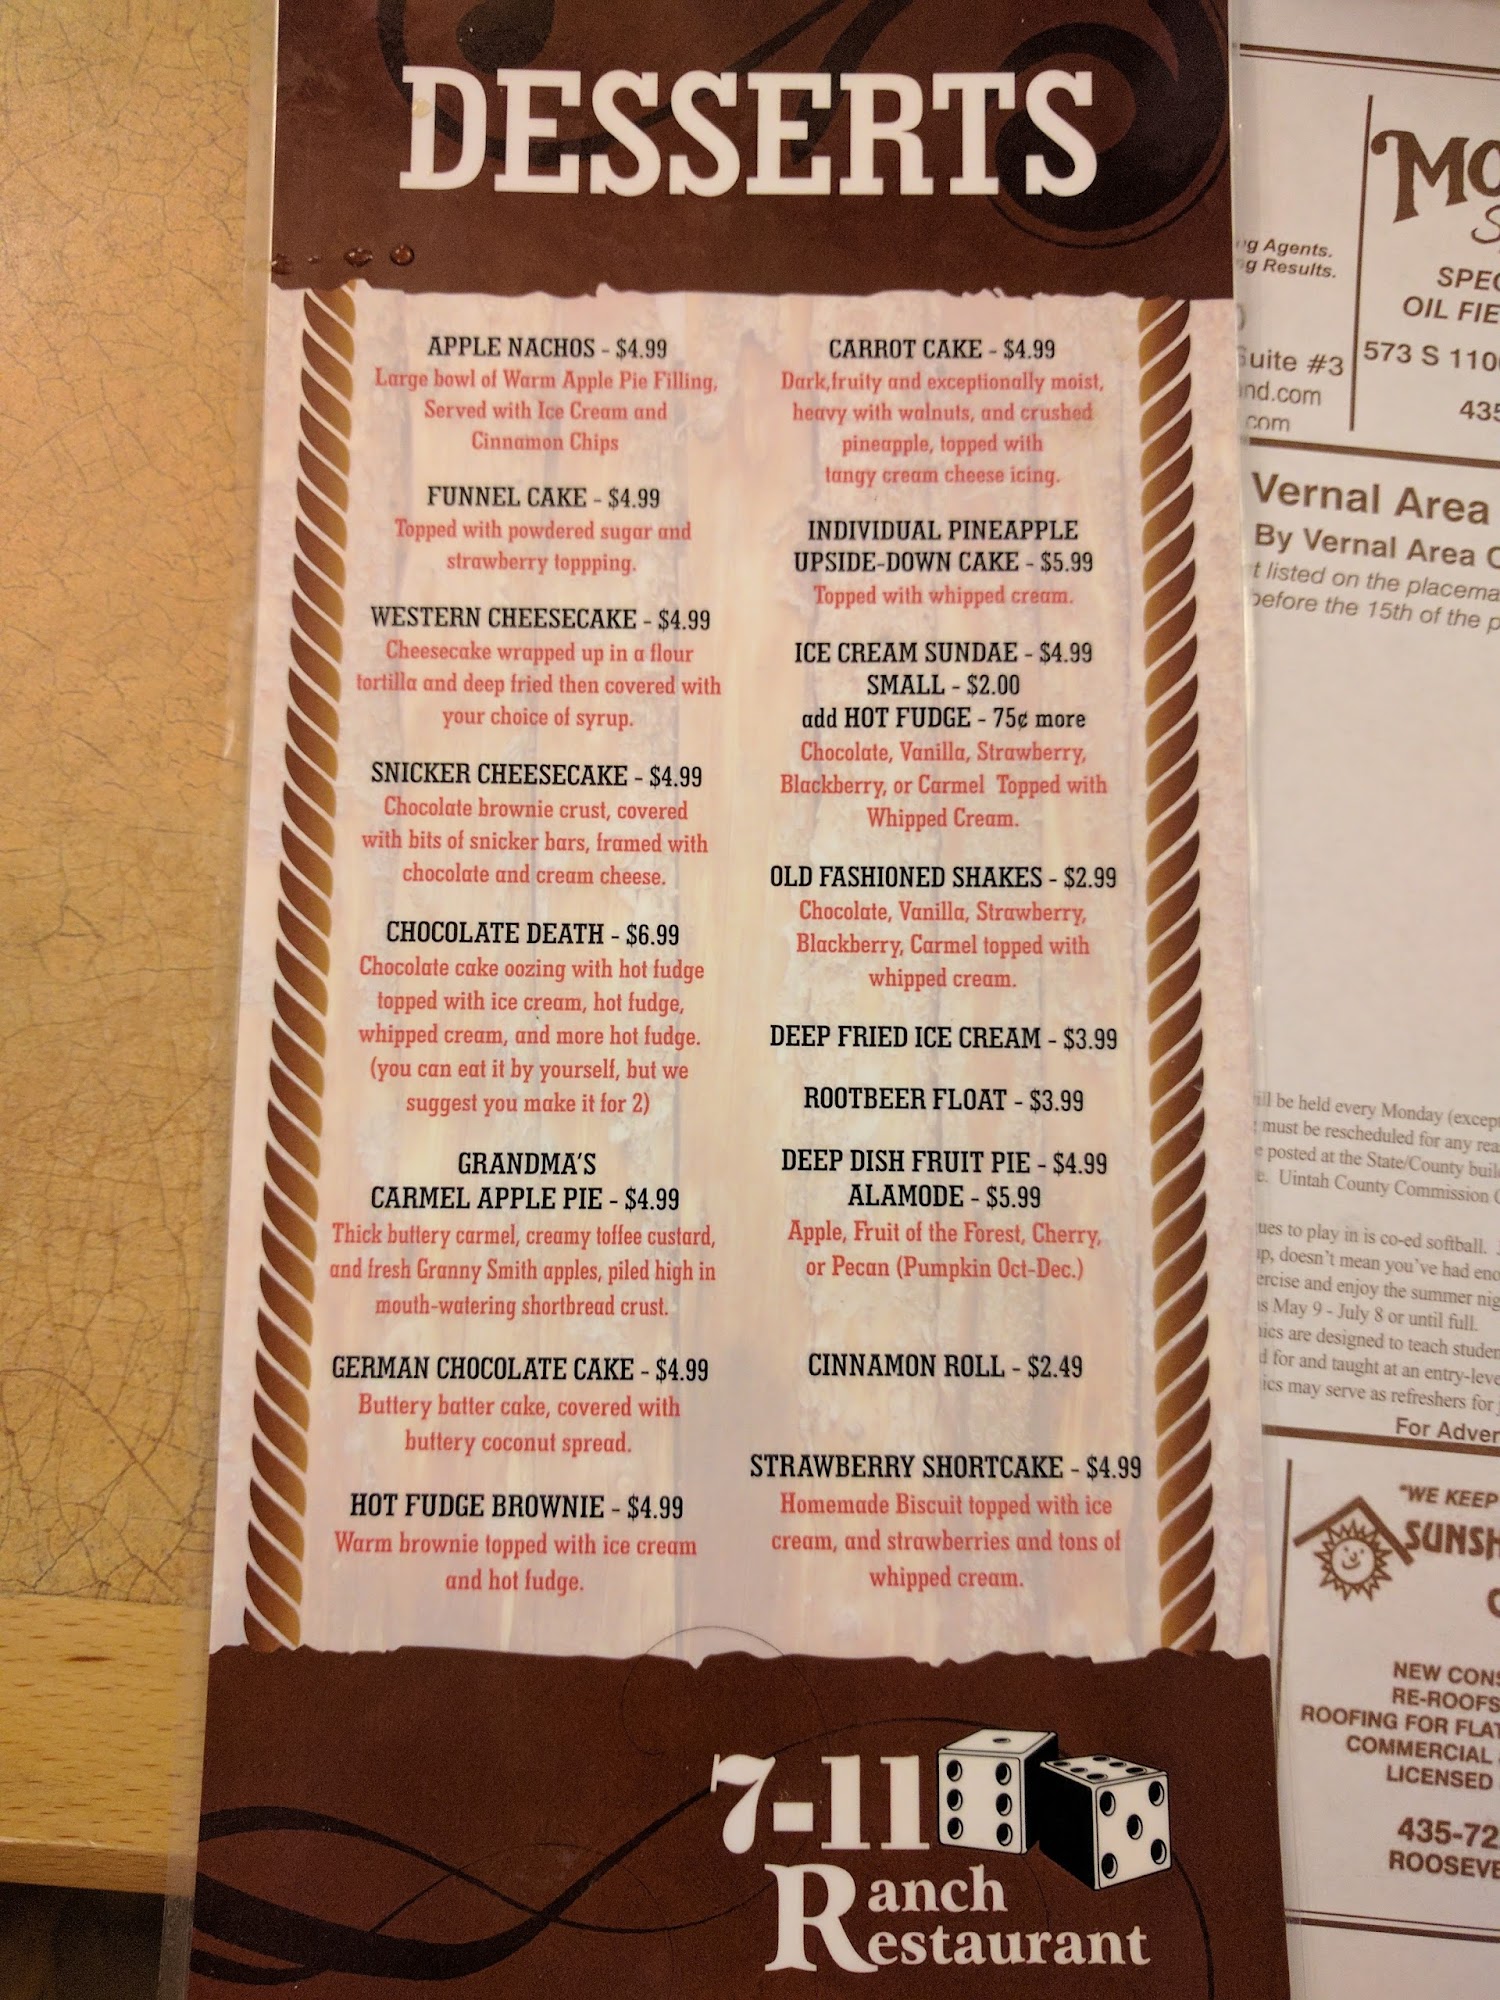 DESSERTS
APPLE NACHOS - $4.99
Large bowl of Warm Apple Pie Filling,
Served with Ice Cream and
Cinnamon Chips
FUNNEL CAKE - $4.99
Topped with powdered sugar and
strawberry toppping.
WESTERN CHEESECAKE - $4.99
Cheesecake wrapped up in a flour
tortilla and deep fried then covered with
your choice of syrup.
SNICKER CHEESECAKE - $4.99
Chocolate brownie crust, covered
with bits of snicker bars, framed with
chocolate and cream cheese.
CHOCOLATE DEATH - $6.99
Chocolate cake oozing with hot fudge
topped with ice cream, hot fudge,
whipped cream, and more hot fudge.
(you can eat it by yourself, but we
suggest you make it for 2)
GRANDMA'S
CARMEL APPLE PIE - $4.99
Thick buttery carmel, creamy toffee custard,
and fresh Granny Smith apples, piled high in
mouth-watering shortbread crust.
GERMAN CHOCOLATE CAKE - $4.99
Buttery batter cake, covered with
buttery coconut spread.
HOT FUDGE BROWNIE - $4.99
Warm brownie topped with ice cream
and hot fudge.
CARROT CAKE - $4.99
Dark,fruity and exceptionally moist,
heavy with walnuts, and crushed
pineapple, topped with
tangy cream cheese icing.
INDIVIDUAL PINEAPPLE
UPSIDE-DOWN CAKE - $5.99
Topped with whipped cream.
ICE CREAM SUNDAE - $4.99
SMALL - $2.00
add HOT FUDGE - 75¢ more
Chocolate, Vanilla, Strawberry,
Blackberry, or Carmel Topped with
Whipped Cream.
OLD FASHIONED SHAKES - $2.99
Chocolate, Vanilla, Strawberry,
Blackberry, Carmel topped with
whipped cream.
DEEP FRIED ICE CREAM - $3.99
ROOTBEER FLOAT - $3.99
DEEP DISH FRUIT PIE - $4.99
ALAMODE - $5.99
Apple, Fruit of the Forest, Cherry,
or Pecan (Pumpkin Oct-Dec.)
CINNAMON ROLL - $2.49
STRAWBERRY SHORTCAKE - $4.99
Homemade Biscuit topped with ice
cream, and strawberries and tons of
whipped cream.
7-11
Ranch
Restaurant
Agents.
Results.
Suite #3
com
573 S
435
Vernal Area
By Vernal Area
listed on the
before the 15th of the
be held every Monday
must be rescheduled for any
posted at the State/County
Uintah County Commission
to play in is co-ed softball.
doesn't mean you've had
and enjoy the summer
May 9 - July 8 or until full.
are designed to teach
for and taught at an
may serve as refreshers for
For
"WE KEEP
NEW
RE-ROOFS
ROOFING FOR
COMMERCIAL
LICENSED